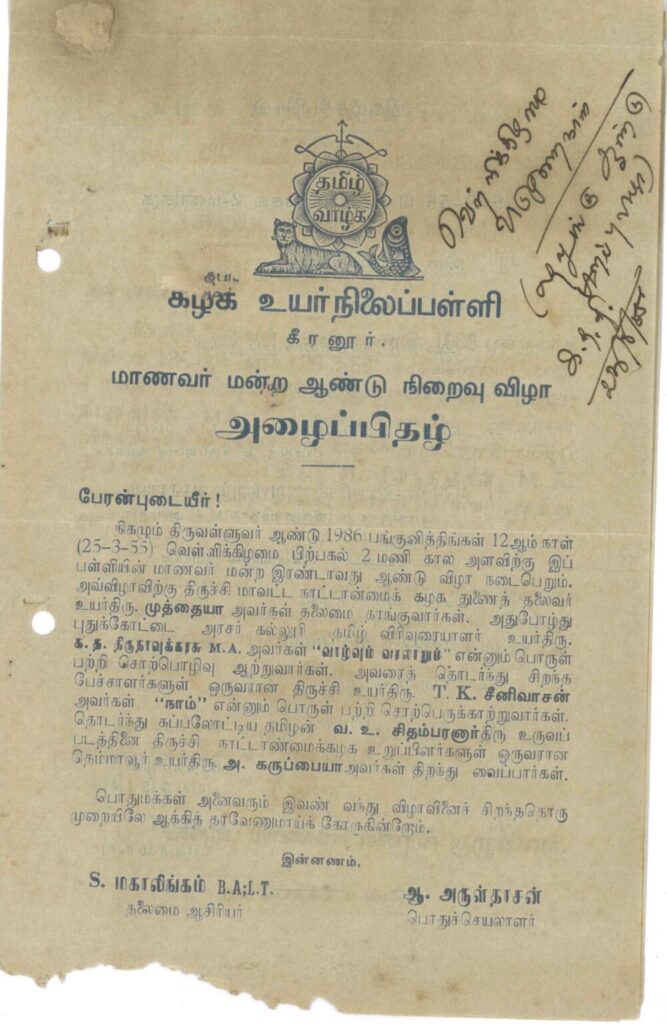 தமிழ்
வாழ்க
கழக உயர்நிலைப்பள்ளி
கீரனூர்.
மாணவர் மன்ற ஆண்டு நிறைவு விழா
அழைப்பிதழ்
பேரன்புடையீர் !
நிகழும் திருவள்ளுவர் ஆண்டு 1986 பங்குனித்திங்கள் 12ஆம் நாள்
(25-3-55) வெள்ளிக்கிழமை பிற்பகல் 2 மணி கால அளவிற்கு இப்
பள்ளியின் மாணவர் மன்ற இரண்டாவது ஆண்டு விழா நடைபெறும்.
அவ்விழாவிற்கு திருச்சி மாவட்ட நாட்டான்மைக் கழக துணைத் தலைவர்
உயர்திரு. முத்தையா அவர்கள் தலைமை தாங்குவார்கள். அதுபோழ்து
புதுக்கோட்டை அரசர் கல்லூரி தமிழ் விரிவுரையாளர் உயர்திரு.
க. த. திருநாவுக்கரசு M.A. அவர்கள் "வாழ்வும் வரலாறும்" என்னும் பொருள்
பற்றி சொற்பொழிவு ஆற்றுவார்கள். அவரைத் தொடர்ந்து சிறந்த
பேச்சாளர்களுள் ஒருவரான திருச்சி உயர்திரு. T. K. சீனிவாசன்
அவர்கள் "நாம்" என்னும் பொருள் பற்றி சொற்பெருக்காற்றுவார்கள்.
தொடர்ந்து கப்பலோட்டிய தமிழன் வ. உ. சிதம்பரனார் திரு உருவப்
படத்தினை திருச்சி நாட்டாண்மைக்கழக உறுப்பினர்களுள் ஒருவரான
தெம்மாவூர் உயர்திரு. அ. கருப்பையா அவர்கள் திறந்து வைப்பார்கள்.
பொதுமக்கள் அனைவரும் இவண் வந்து விழாவினைச் சிறந்ததொரு
முறையிலே ஆக்கித் தரவேணுமாய்க் கோருகின்றேம்.
இன்னணம்,
S. மகாலிங்கம் B.A;L.T.
தலைமை ஆசிரியர்
ஆ. அருள்தாசன்
பொதுச்செயலாளர்